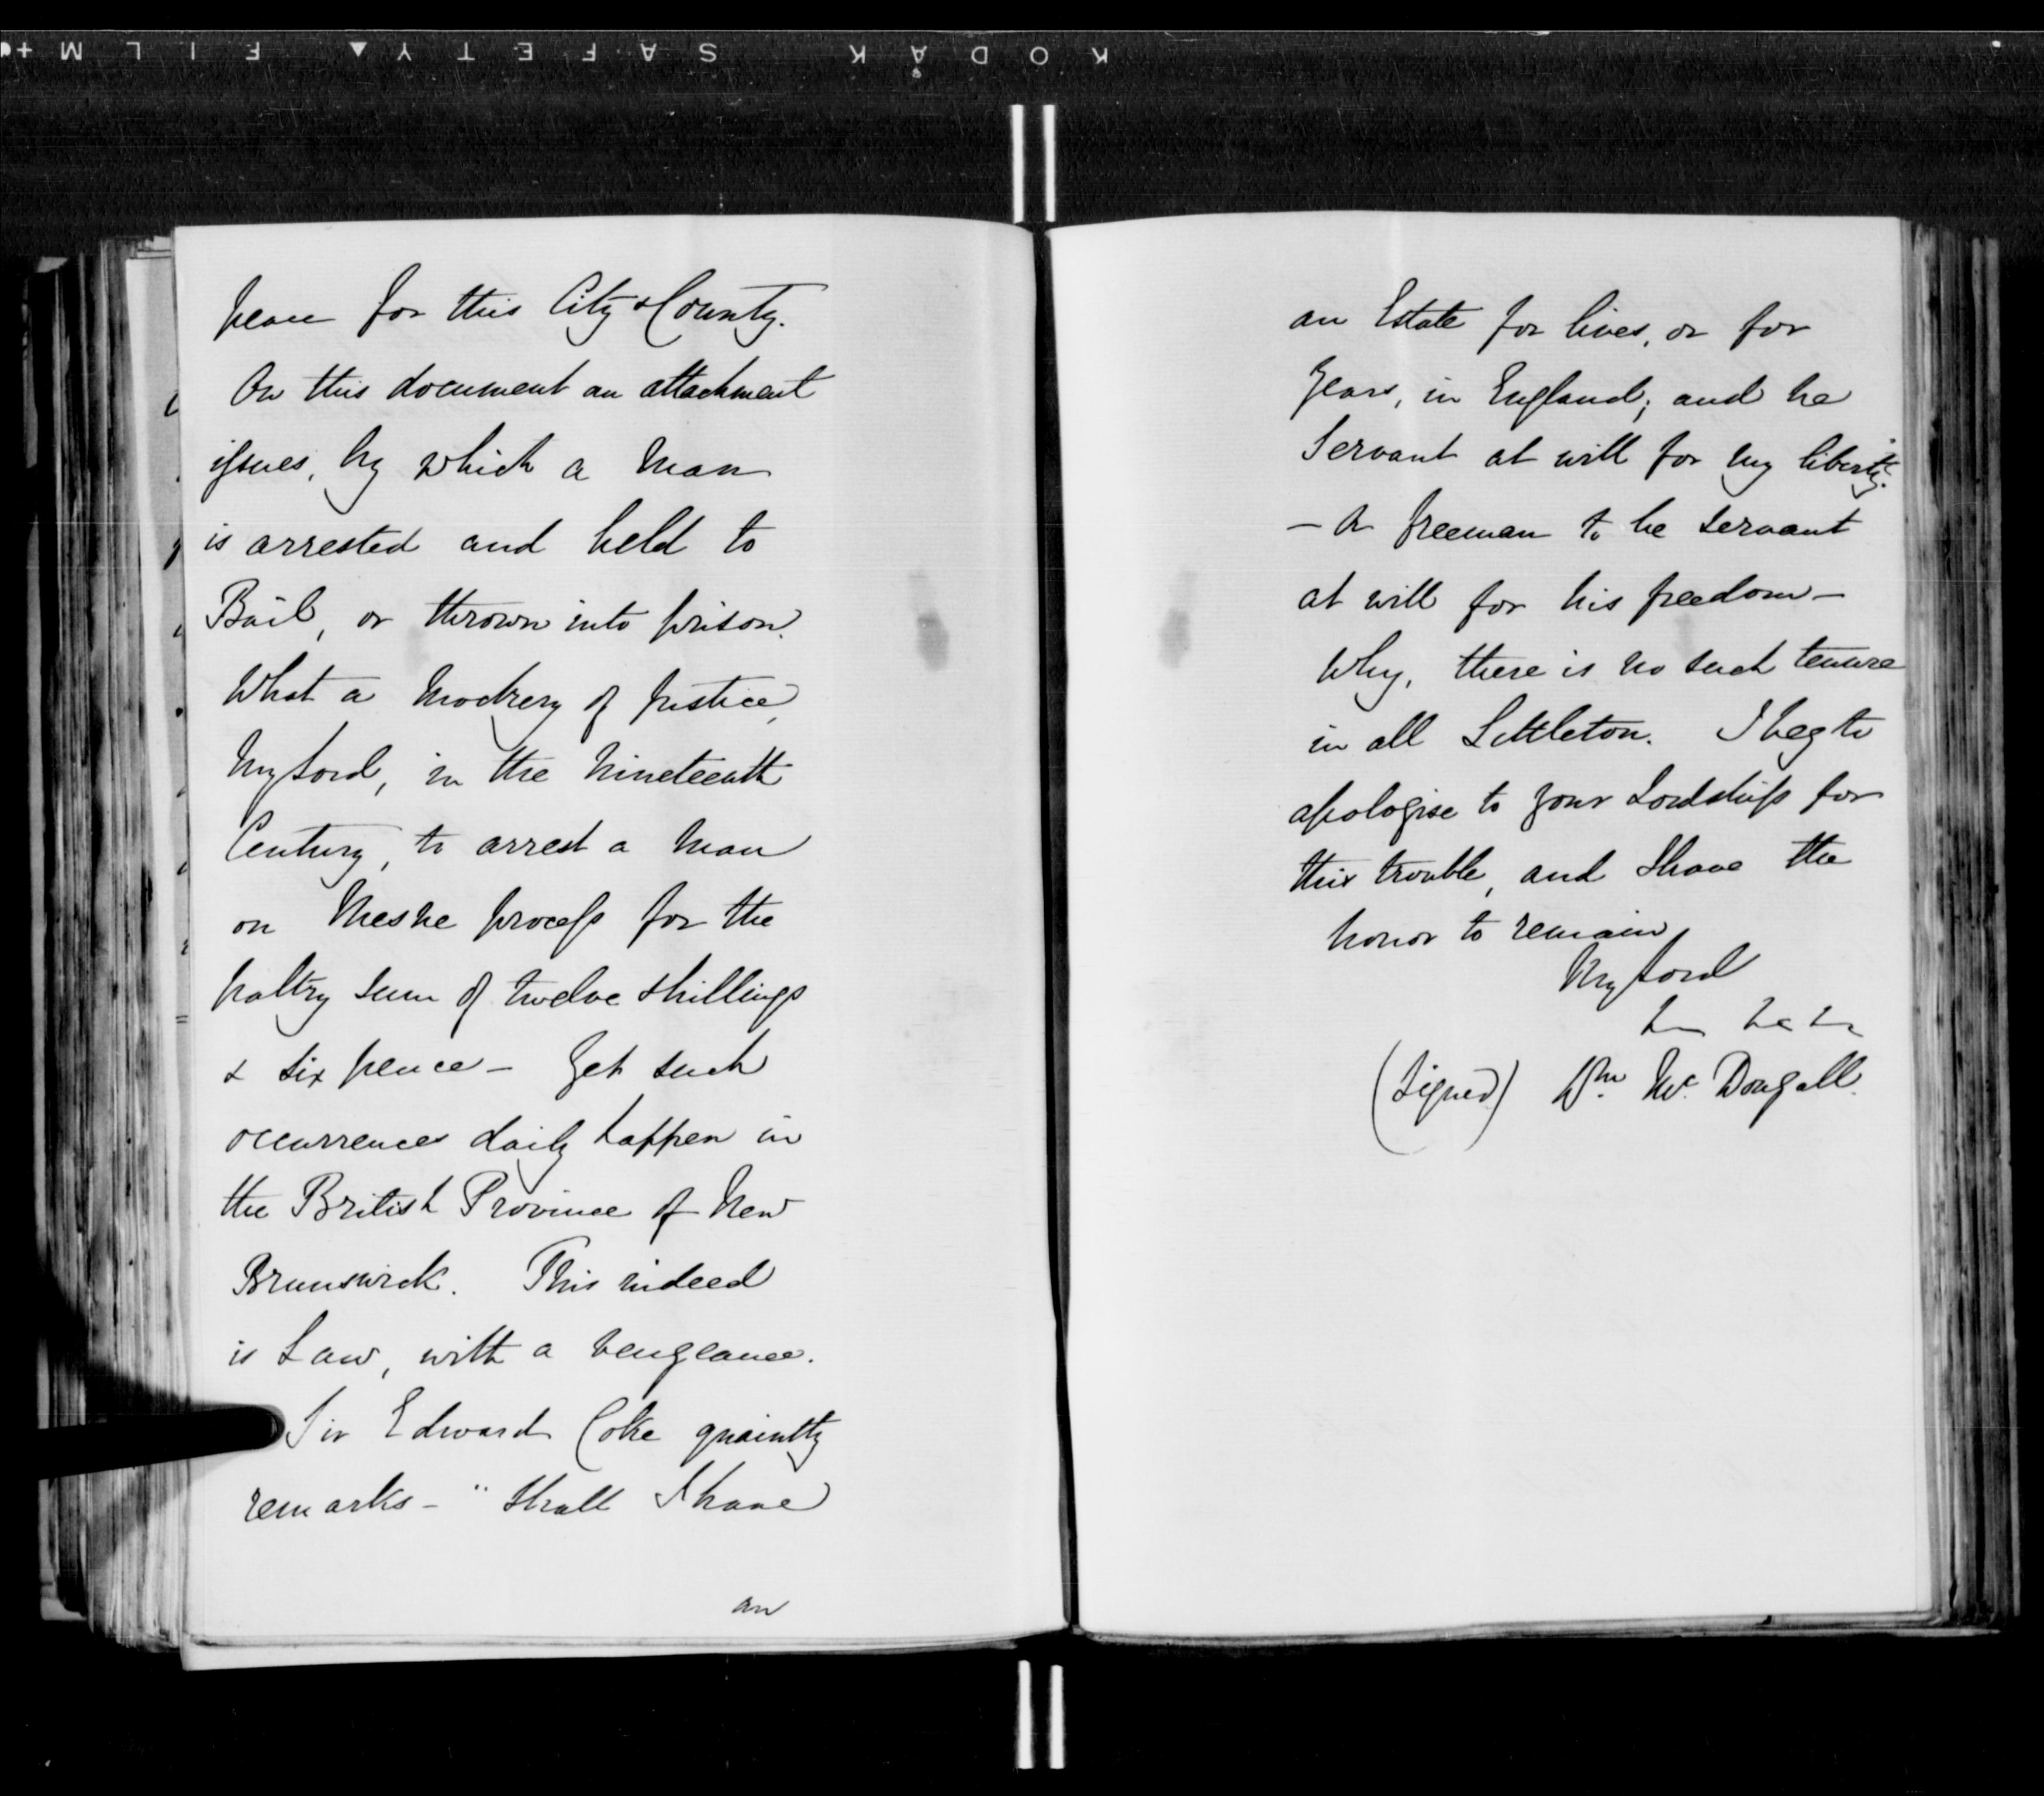 KODAK SAFETY FILM
peace for this City & County.
On this document an attachment
issues, by which a man
is arrested and held to
Bail, or thrown into prison.
What a mockery of justice,
My Lord, in the Nineteenth
Century, to arrest a man
on Mesne process for the
paltry sum of twelve shillings
& six pence - Yet such
occurrences daily happen in
the British Province of New
Brunswick. This indeed
is Law, with a vengeance.
Sir Edward Coke quaintly
remarks - " Shall I have
an
an Estate for lives, or for
Years, in England; and be
Servant at will for my liberty.
- A freeman to be servant
at will for his freedom -
Why, there is no such tenure
in all Littleton. I beg to
apologise to your Lordship for
this trouble, and I have the
honor to remain,
My Lord
(Signed) Wm Mc Dougall.